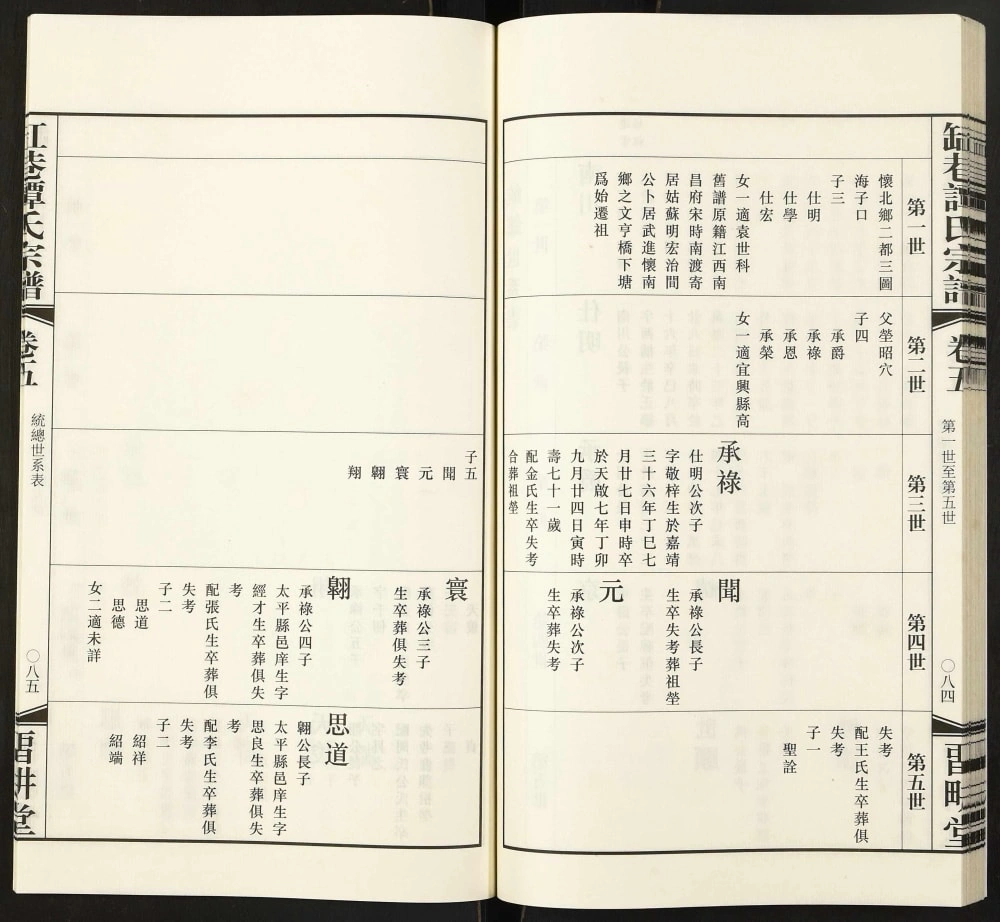 巷譚氏宗譜
卷五
第一世至第五世
〇八四
堂
第一世
懷北鄉二都三圖
海子口
子三
仕明
仕學
仕宏
女一適袁世科
舊譜原籍江西南
昌府宋時南渡寄
居姑蘇明宏治間
公卜居武進懷南
鄉之文亨橋下塘
爲始遷祖
第二世
父塋昭穴
子四
承爵
承祿
承恩
承榮
女一適宜興縣高
第三世
承祿
仕明公次子
字敬梓生於嘉靖
三十六年丁巳七
月廿七日申時卒
於天啟七年丁卯
九月廿四日寅時
壽七十一歲
配金氏生卒失考
合葬祖塋
第四世
聞
承祿公長子
生卒失考葬祖塋
元
承祿公次子
生卒葬失考
第五世
失考
配王氏生卒葬俱
失考
子一
聖詮
子五
聞
元
寰
翺
翔
寰
承祿公三子
生卒葬俱失考
翺
承祿公四子
太平縣邑庠生字
經才生卒葬俱失
考
配張氏生卒葬俱
失考
子二
思道
思德
女二適未詳
思道
翺公長子
太平縣邑庠生字
思良生卒葬俱失
考
配李氏生卒葬俱
失考
子二
紹祥
紹端
巷譚氏宗譜
卷五
統總世系表
〇八五
耕堂